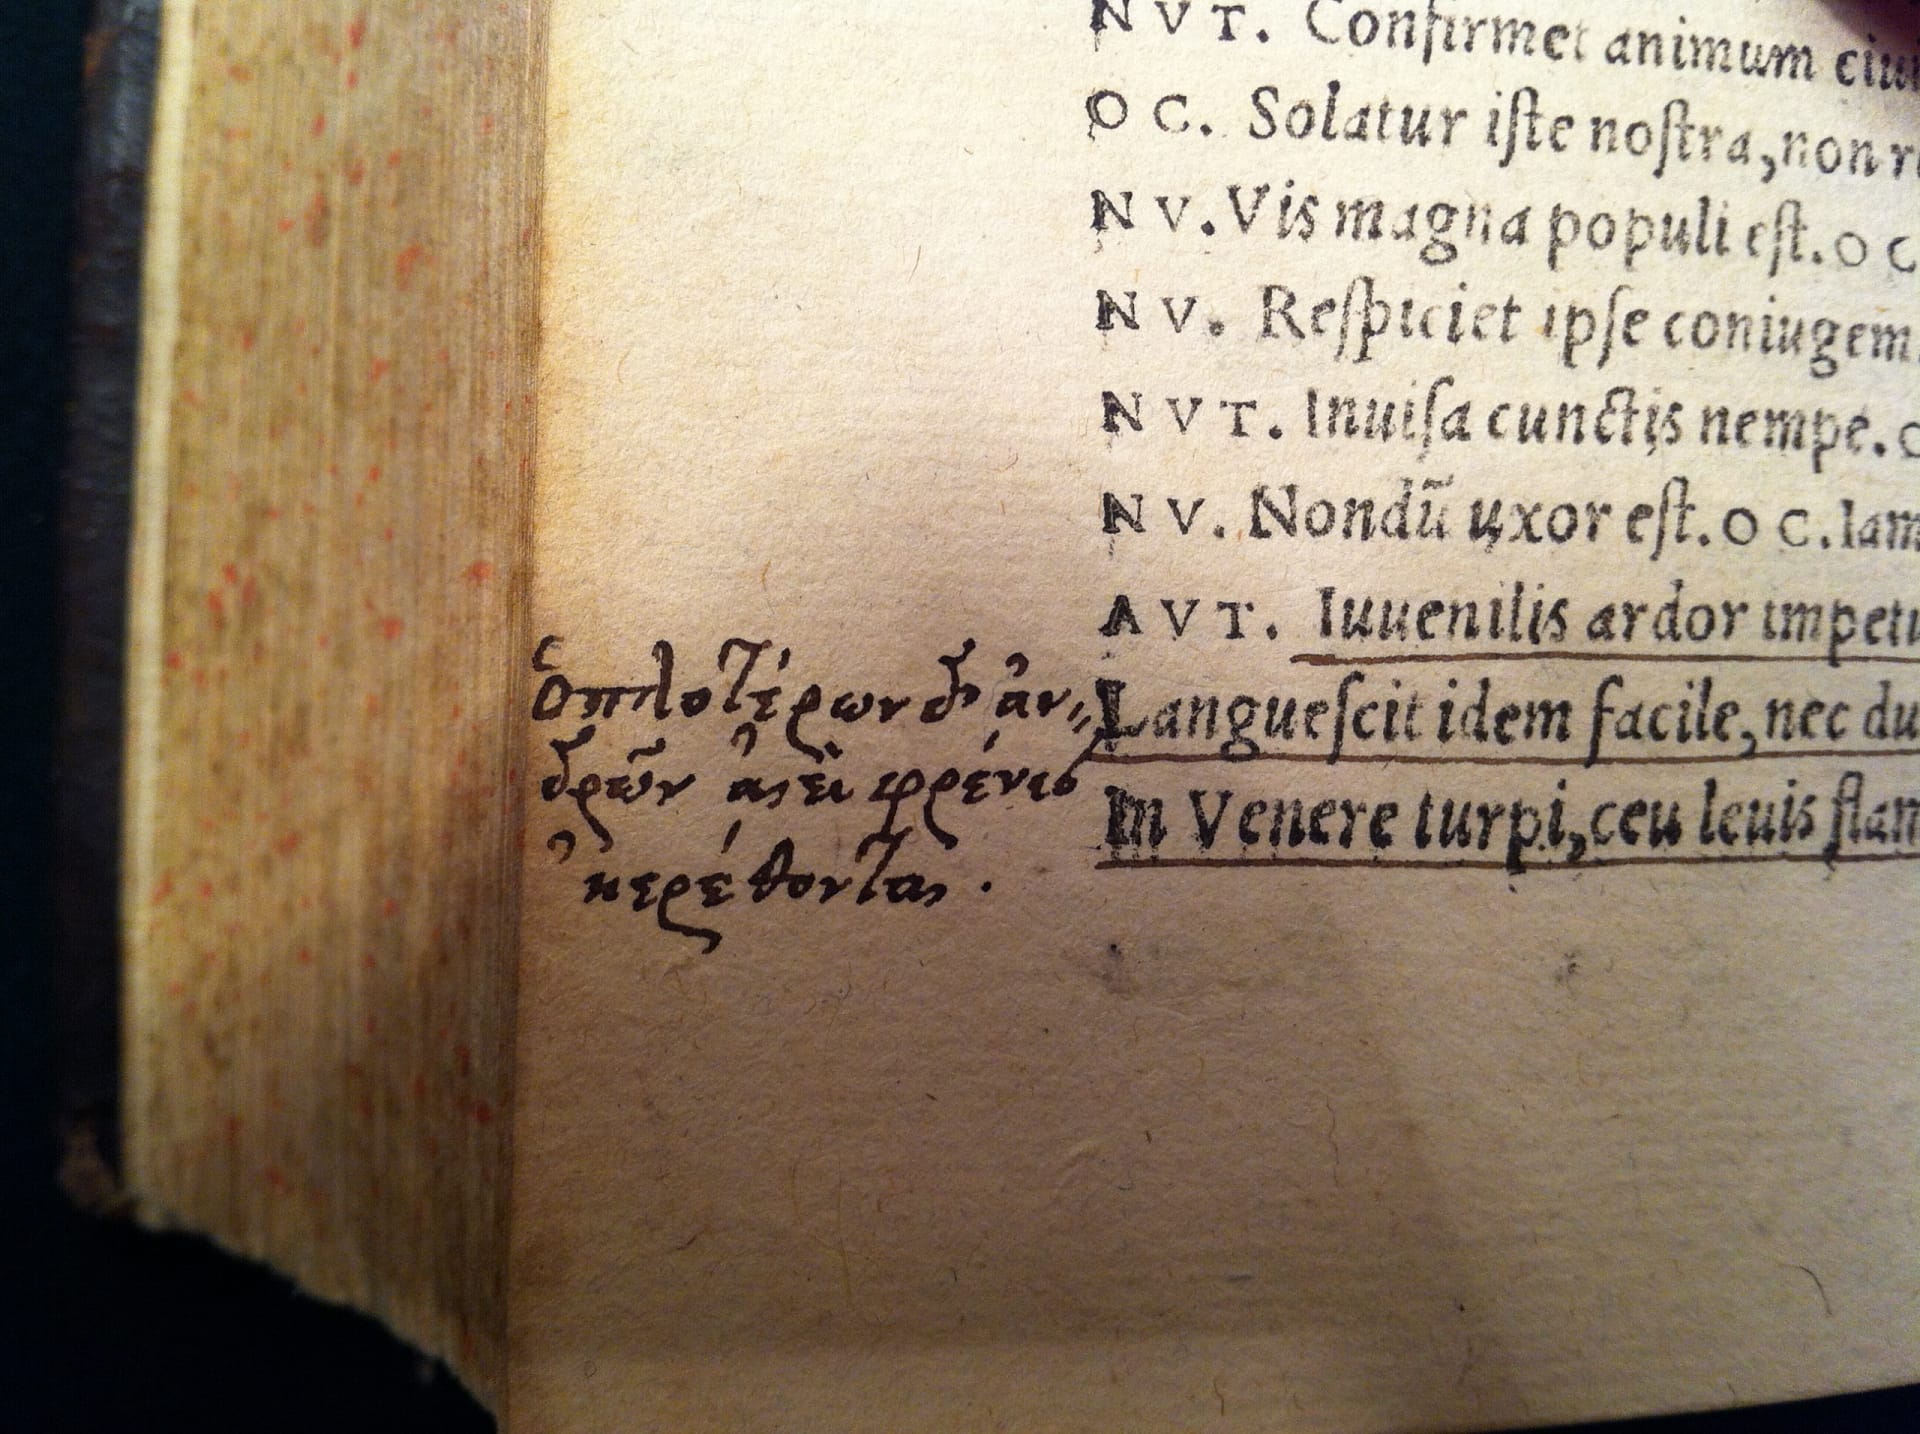 NVT. Confirmet animum
OC. Solatur iſte noſtra, non
NV. Vis magna populi eſt. OC
NV. Reſpiciet ipſe coniugem
NVT. Inuiſa cunctis nempe.
NV. Nondũ uxor eſt. OC. Iam
AVT. Iuuenilis ardor impetu
Langueſcit idem facile, nec du
In Venere turpi, ceu leuis flam
ὁπλοτέρων δ' ἀν-
δρῶν
ἠερέθονται.